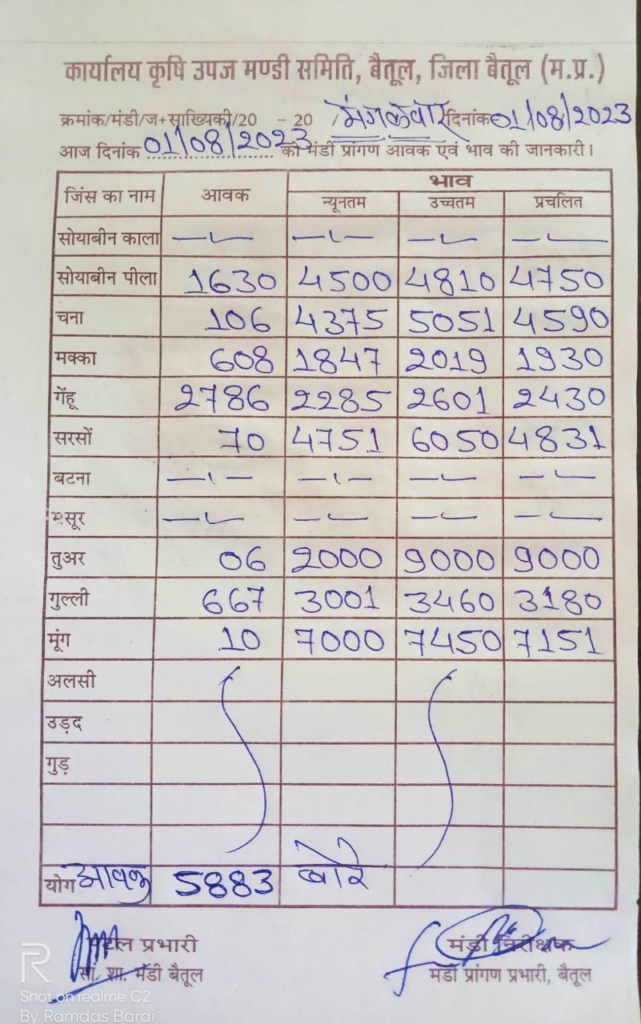 कार्यालय कृषि उपज मण्डी समिति, बैतूल, जिला बैतूल (म.प्र.)
क्रमांक/मंडी/ज+साख्यिकी/20 - 20 / मंगलवार दिनांक 01/08/2023
आज दिनांक 01/08/2023 को मंडी प्रांगण आवक एवं भाव की जानकारी।
जिंस का नाम आवक भाव
न्यूनतम उच्चतम प्रचलित
सोयाबीन काला
सोयाबीन पीला 1630 4500 4810 4750
चना 106 4375 5051 4590
मक्का 608 1847 2019 1930
गेंहू 2786 2285 2601 2430
सरसों 70 4751 6050 4831
बटना
मसूर
तुअर 06 2000 9000 9000
गुल्ली 667 3001 3460 3180
मूंग 10 7000 7450 7151
अलसी
उड़द
गुड़
योग आवक 5883 बोरे
प्रभारी मंडी निरीक्षक
सां. शा. मंडी बैतूल मंडी प्रांगण प्रभारी, बैतूल
R
Shot on realme C2
By Ramdas Barai